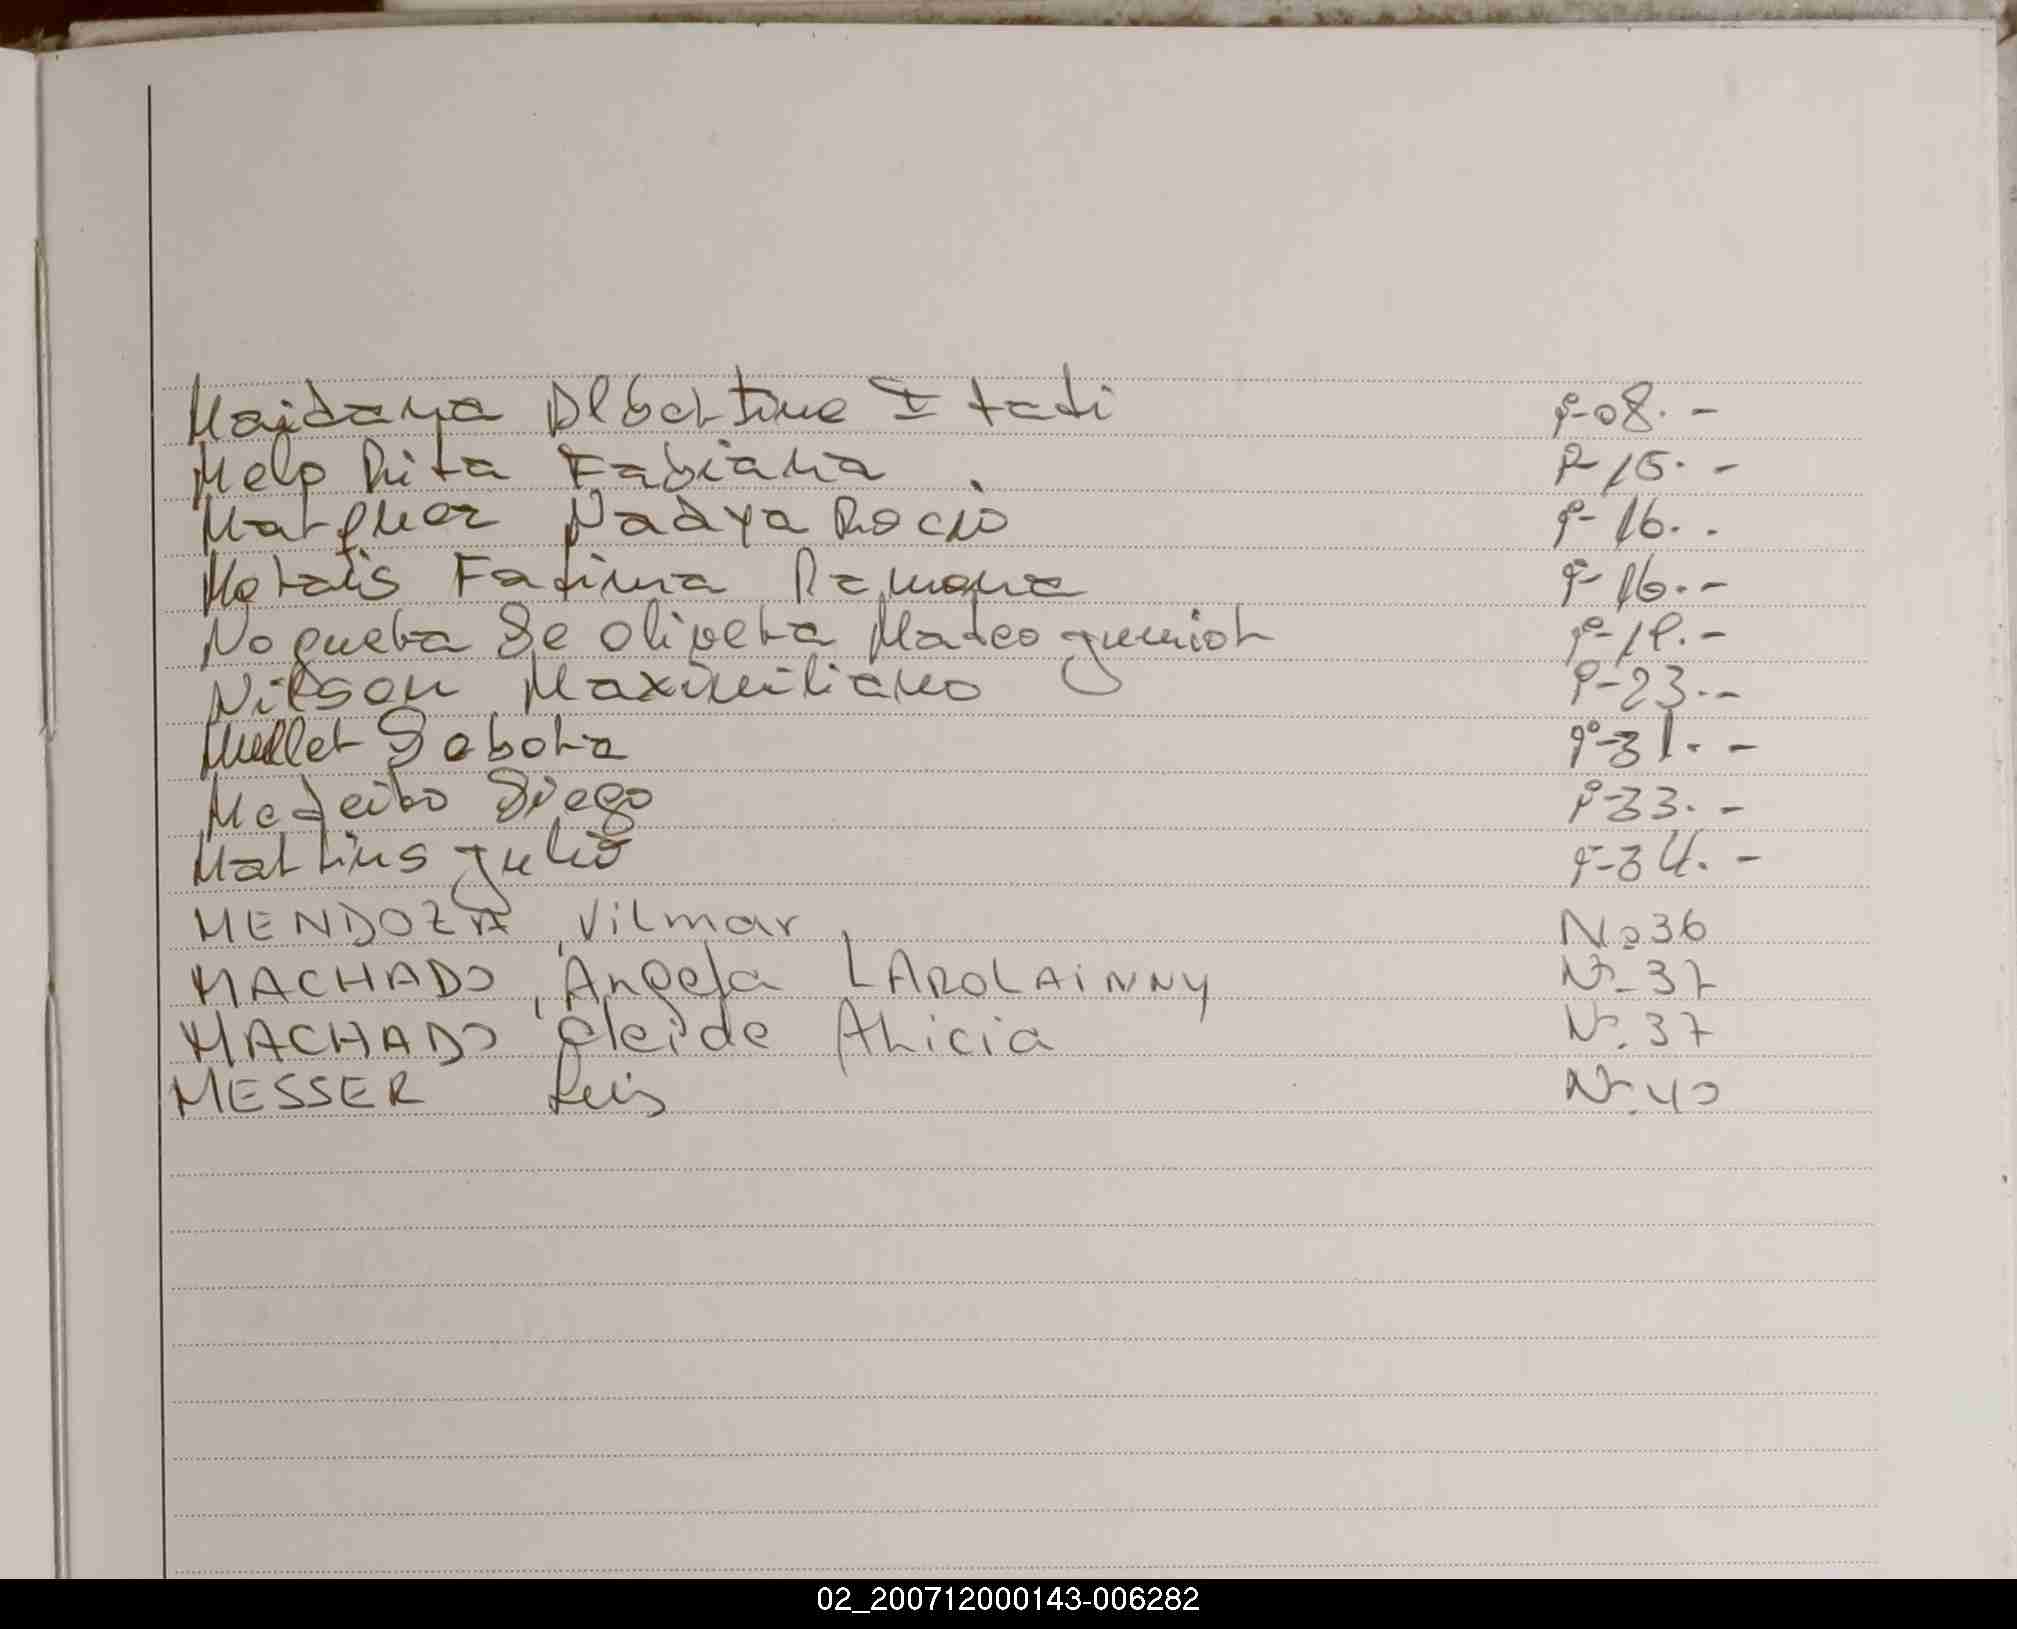 Maidana Albertina Itati P-08.-
Melo Rita Fabiana P-15.-
Nadya Rocio P-16..
Morais Fatima Ramona P-16.-
Noguera De Olivera Mateo Junior P-19.-
Nilson Maximiliano P-23.-
Muller Debora P-31.-
Madeiro Diego P-33.-
Martins Julio P-34.-
MENDOZA, Vilmar No 36
MACHADO, Angela LAROLAINNY Nº 37
MACHADO, Cleide ALicia Nº 37
MESSER Luis Nº 40
02_200712000143-006282